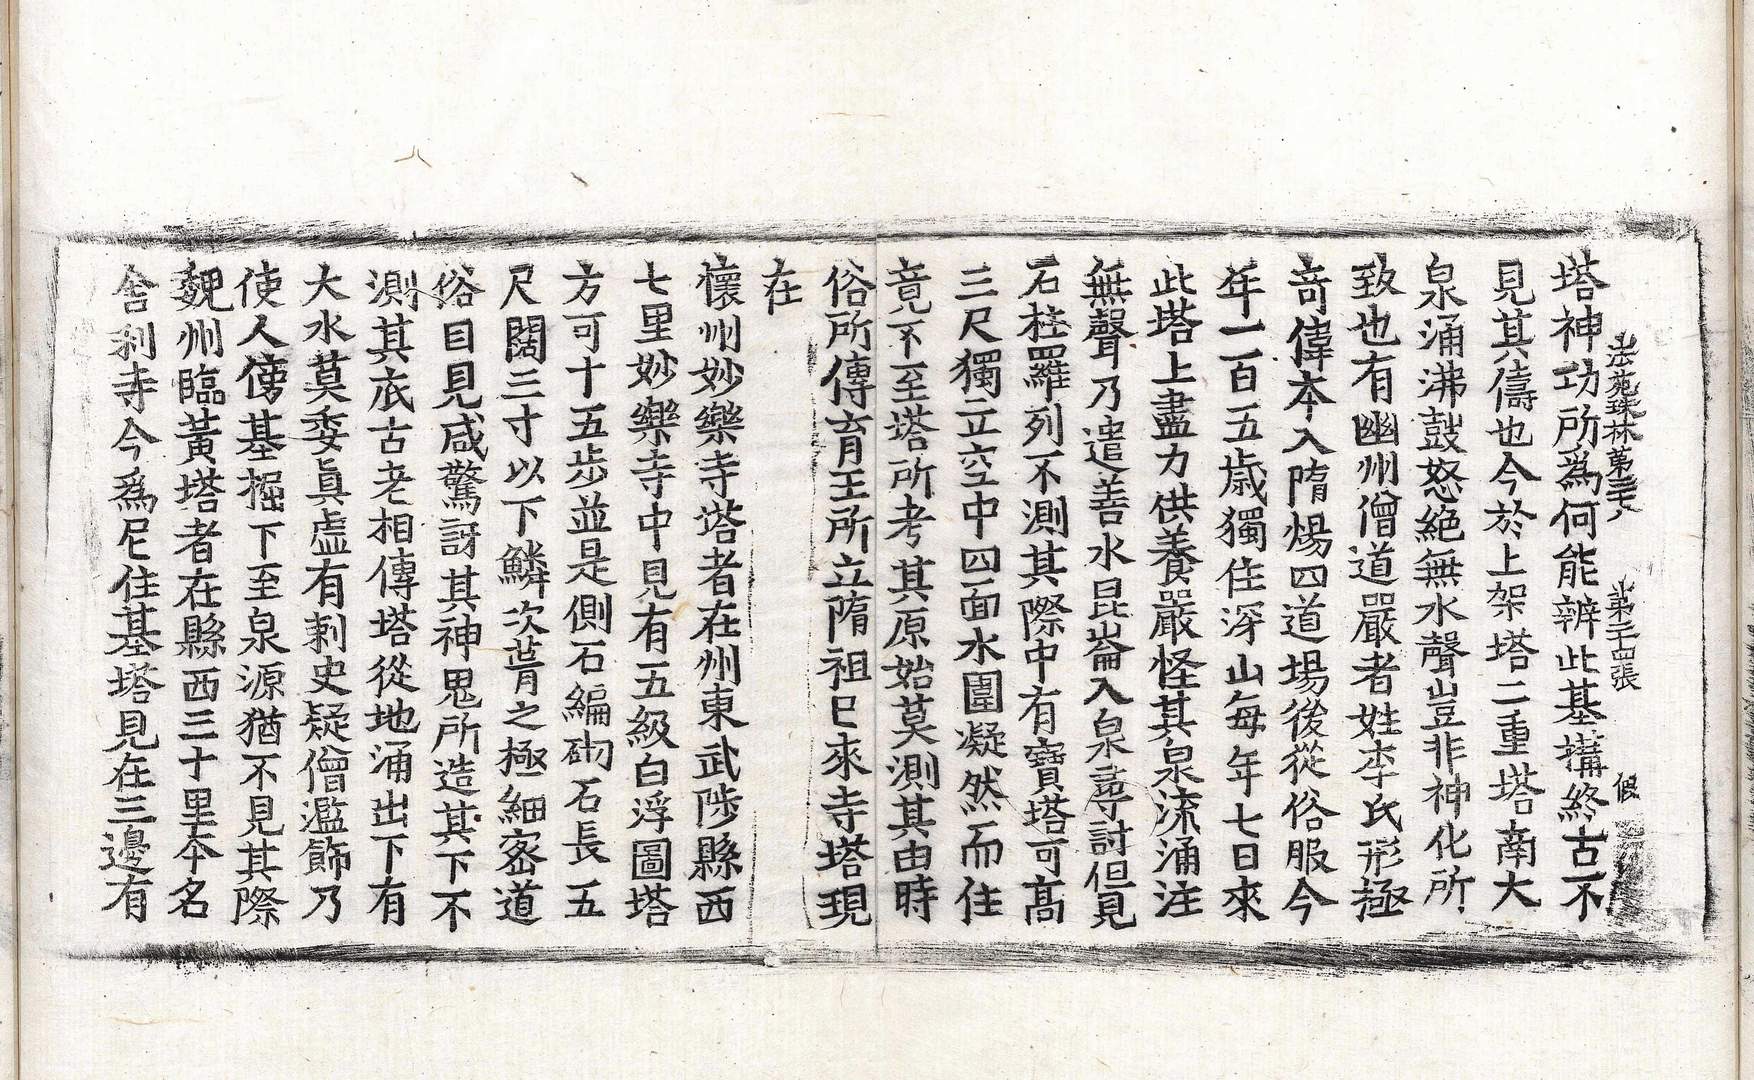 法苑珠林第三十八 第二十四張 假
塔神功所爲何能辨此基搆終古不
見其儔也今於上架塔二重塔南大
泉涌沸鼓怒絕無水聲豈非神化所
致也有幽州僧道嚴者姓李氏形極
竒偉本入隋煬四道場後從俗服今
年一百五歲獨住深山每年七日來
此塔上盡力供養嚴怪其泉流涌注
無聲乃遣善水昆崙入泉尋討但見
石柱羅列不測其際中有寶塔可高
三尺獨立空中四面水圍凝然而住
竟不至塔所考其原始莫測其由時
俗所傳育王所立隋祖已來寺塔現
在
懷州妙樂寺塔者在州東武陟縣西
七里妙樂寺中見有五級白浮圖塔
方可十五步並是側石編砌石長五
尺闊三寸以下鱗次葺之極細密道
俗目見咸驚訝其神鬼所造其下不
測其底古老相傳塔從地涌出下有
大水莫委眞虛有刺史疑僧濫飾乃
使人傍基掘下至泉源猶不見其際
魏州臨黃塔者在縣西三十里本名
舍利寺今爲尼住基塔見在三邊有